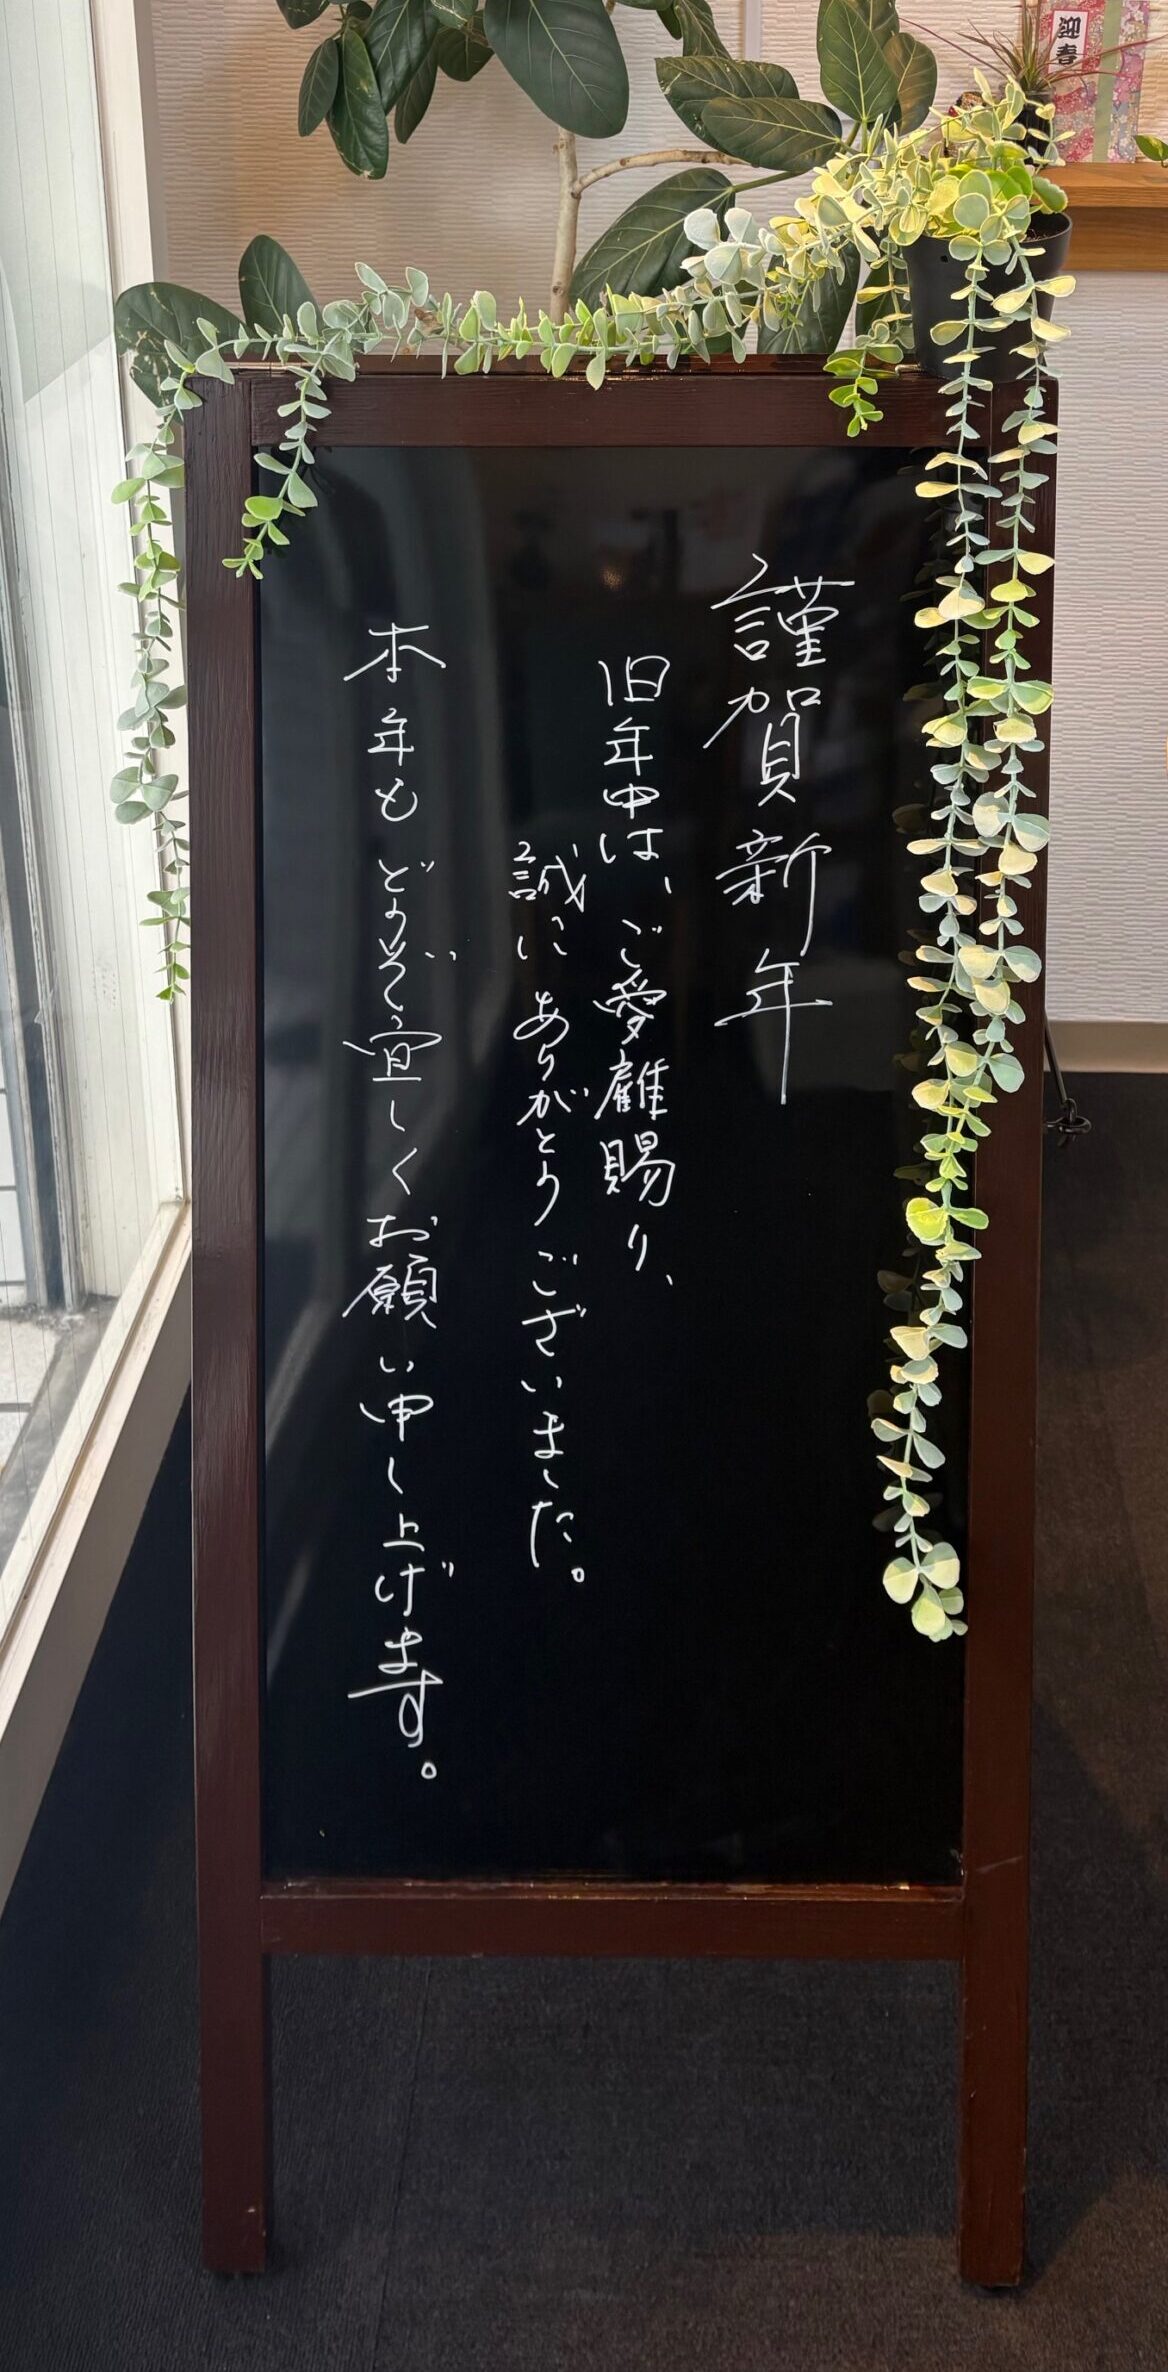 謹賀新年
旧年中は、ご愛雇賜り、
誠にありがとうございました。
本年もどうぞ宜しくお願い申し上げます。
迎春